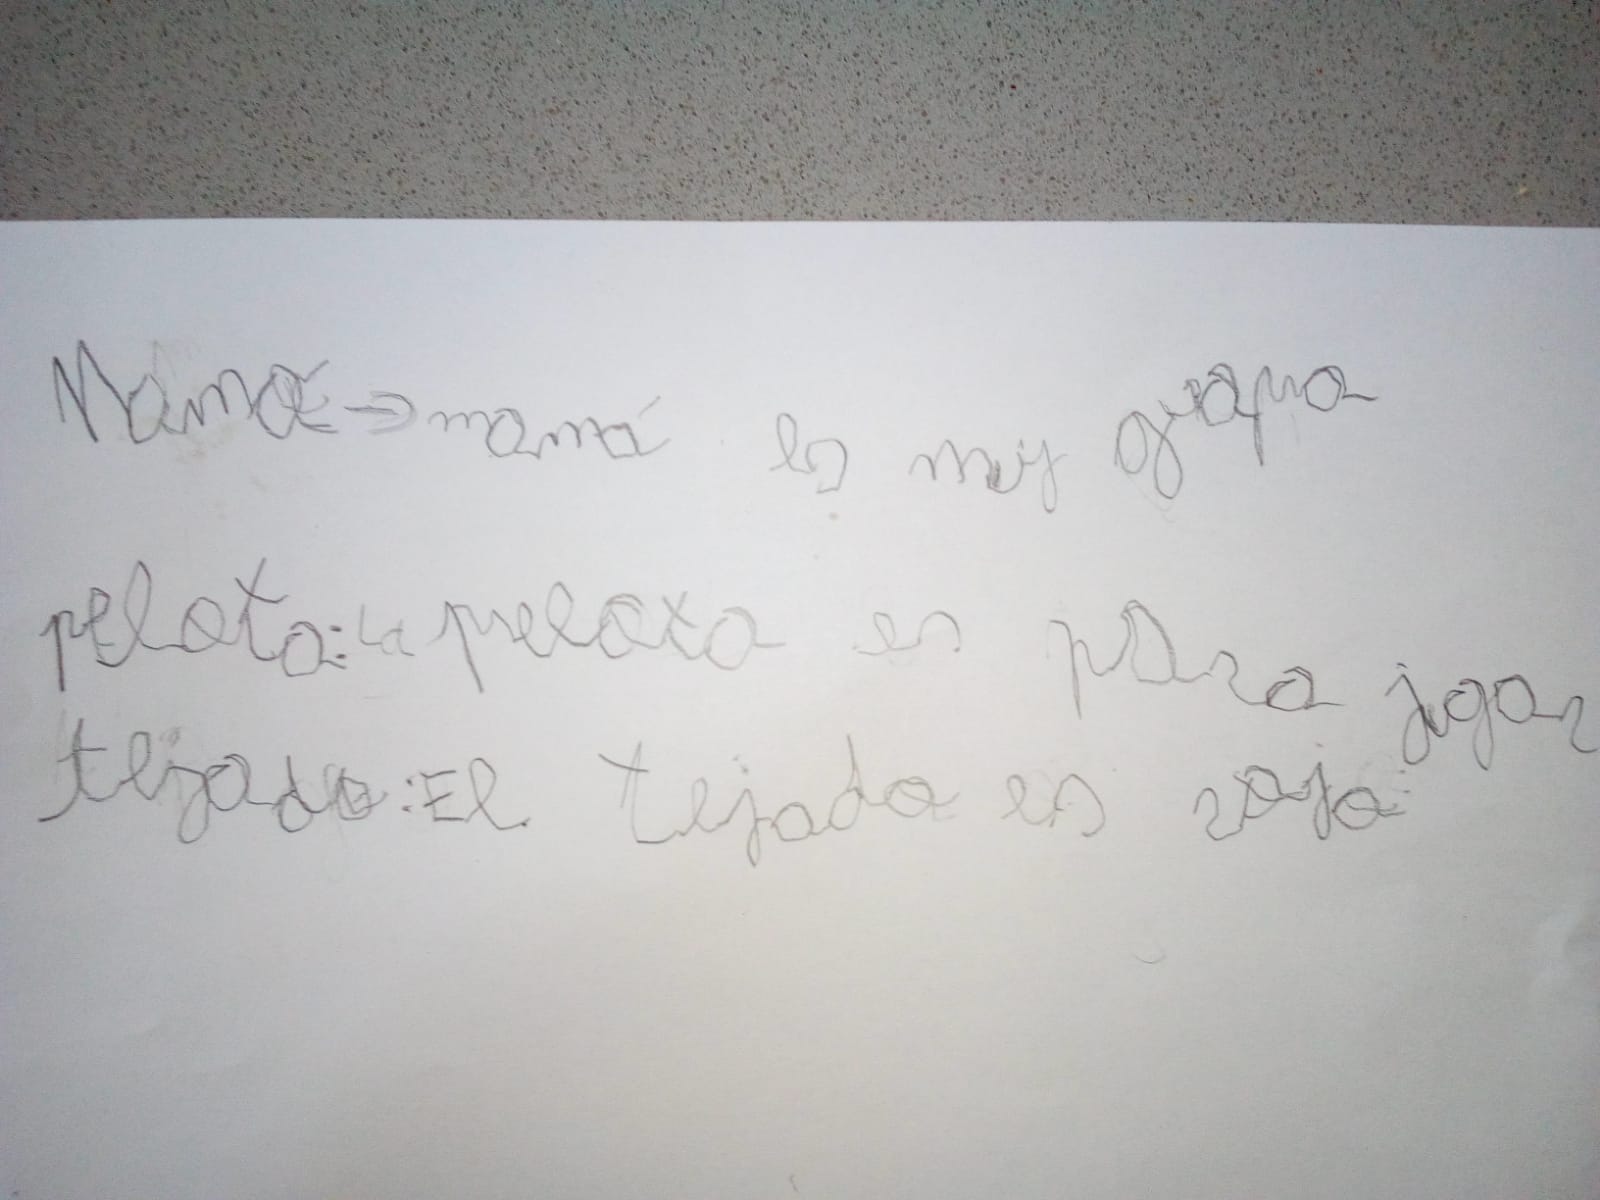 Mamá → mamá es muy guapa
pelota: La pelota es para jugar
tejado: El tejado es rojo.